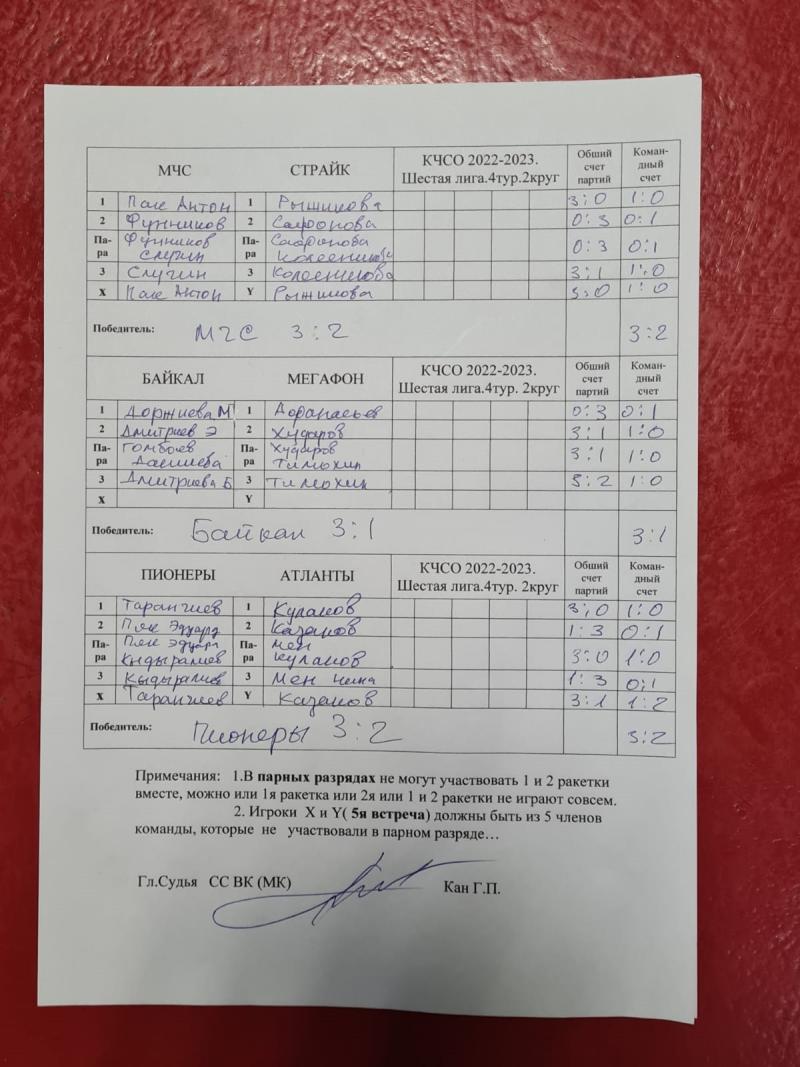 МЧС СТРАЙК КЧСО 2022-2023. Шестая лига.4тур.2круг Обший счет партий Коман-дный счет
1 Пак Антон 1 Рыжикова 3:0 1:0
2 Фунников 2 Сафронова 0:3 0:1
Па-ра Фунников Слугин Па-ра Сафронова Колесникова 0:3 0:1
3 Слугин 3 Колесникова 3:1 1:0
Х Пак Антон Y Рыжикова 3:0 1:0
Победитель: МЧС 3:2 3:2
БАЙКАЛ МЕГАФОН КЧСО 2022-2023. Шестая лига.4тур. 2круг Обший счет партий Коман-дный счет
1 Доржиева М 1 0:3 0:1
2 Дмитриев Э 2 Хударов 3:1 1:0
Па-ра Гомбоев Па-ра Хударов Тимохин 3:1 1:0
3 Дмитриева Б 3 Тимохин 3:2 1:0
Х Y
Победитель: Байкал 3:1 3:1
ПИОНЕРЫ АТЛАНТЫ КЧСО 2022-2023. Шестая лига.4тур. 2круг Обший счет партий Коман-дный счет
1 Таранчиев 1 Куланов 3:0 1:0
2 Пяк Эдуард 2 Казаков 1:3 0:1
Па-ра Пяк Эдуард Кыдыралиев Па-ра Мен Куланов 3:0 1:0
3 Кыдыралиев 3 Мен Нина 1:3 0:1
Х Таранчиев Y Казаков 3:1 1:2
Победитель: Пионеры 3:2 3:2
Примечания: 1.В парных разрядах не могут участвовать 1 и 2 ракетки
вместе, можно или 1я ракетка или 2я или 1 и 2 ракетки не играют совсем.
2. Игроки Х и Y( 5я встреча) должны быть из 5 членов
команды, которые не участвовали в парном разряде…
Гл.Судья СС ВК (МК) Кан Г.П.